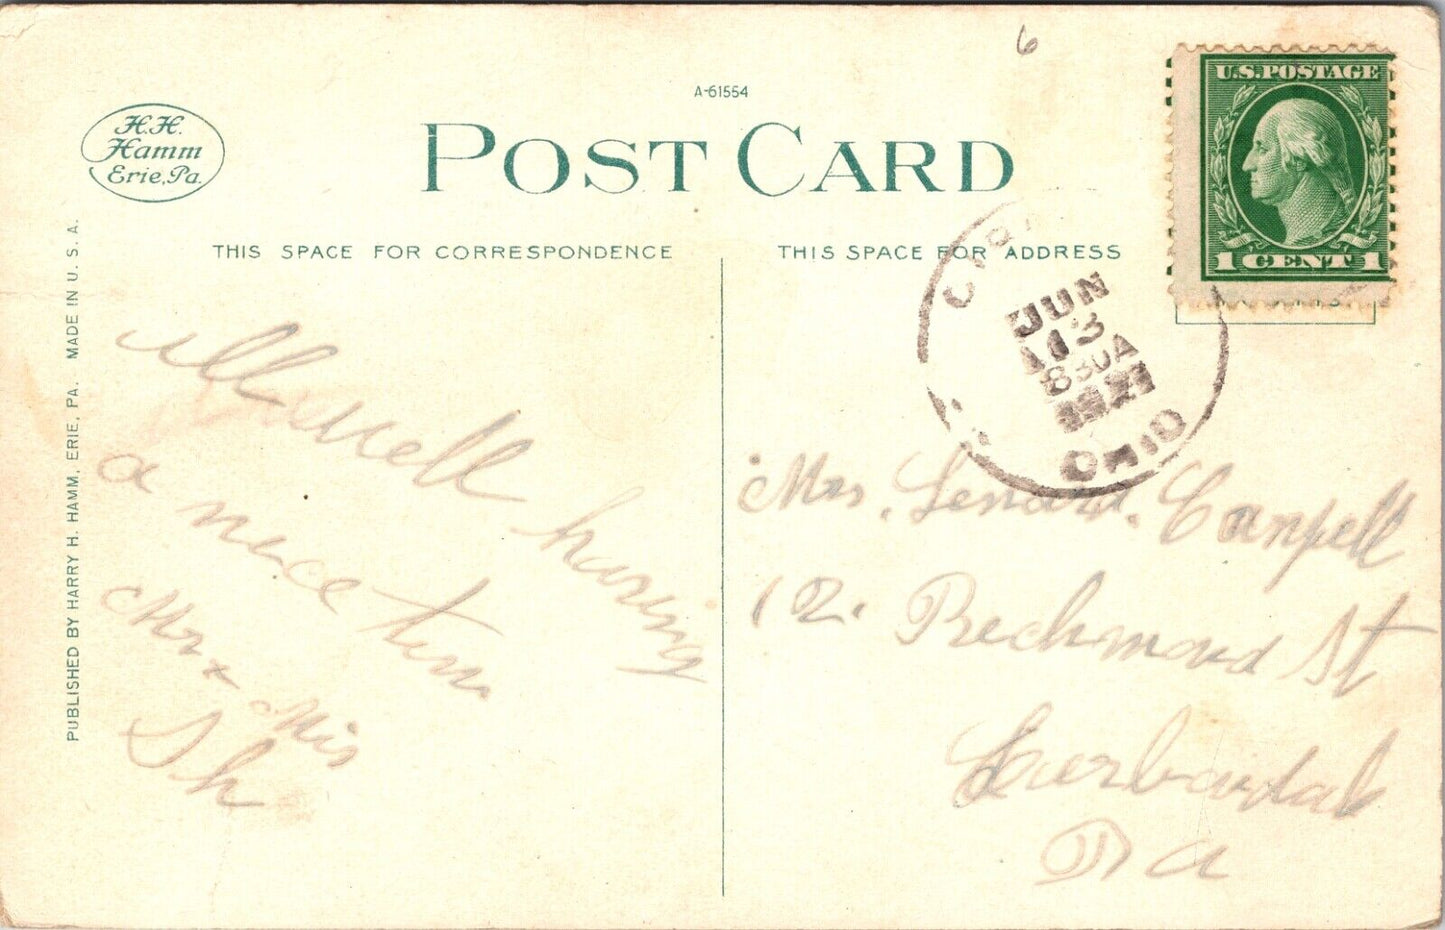 6
A-61554
H.H.
Hamm
Erie, Pa.
POST CARD
U.S. POSTAGE
1 CENT 1
THIS SPACE FOR CORRESPONDENCE
THIS SPACE FOR ADDRESS
PUBLISHED BY HARRY H. HAMM, ERIE, PA. MADE IN U. S. A.
JUN
13
830A
1921
OHIO
well having
a nice tim
Mr + Mis
Sh
Mrs. Lenard. Canpell
12. Rechmond St
Pa